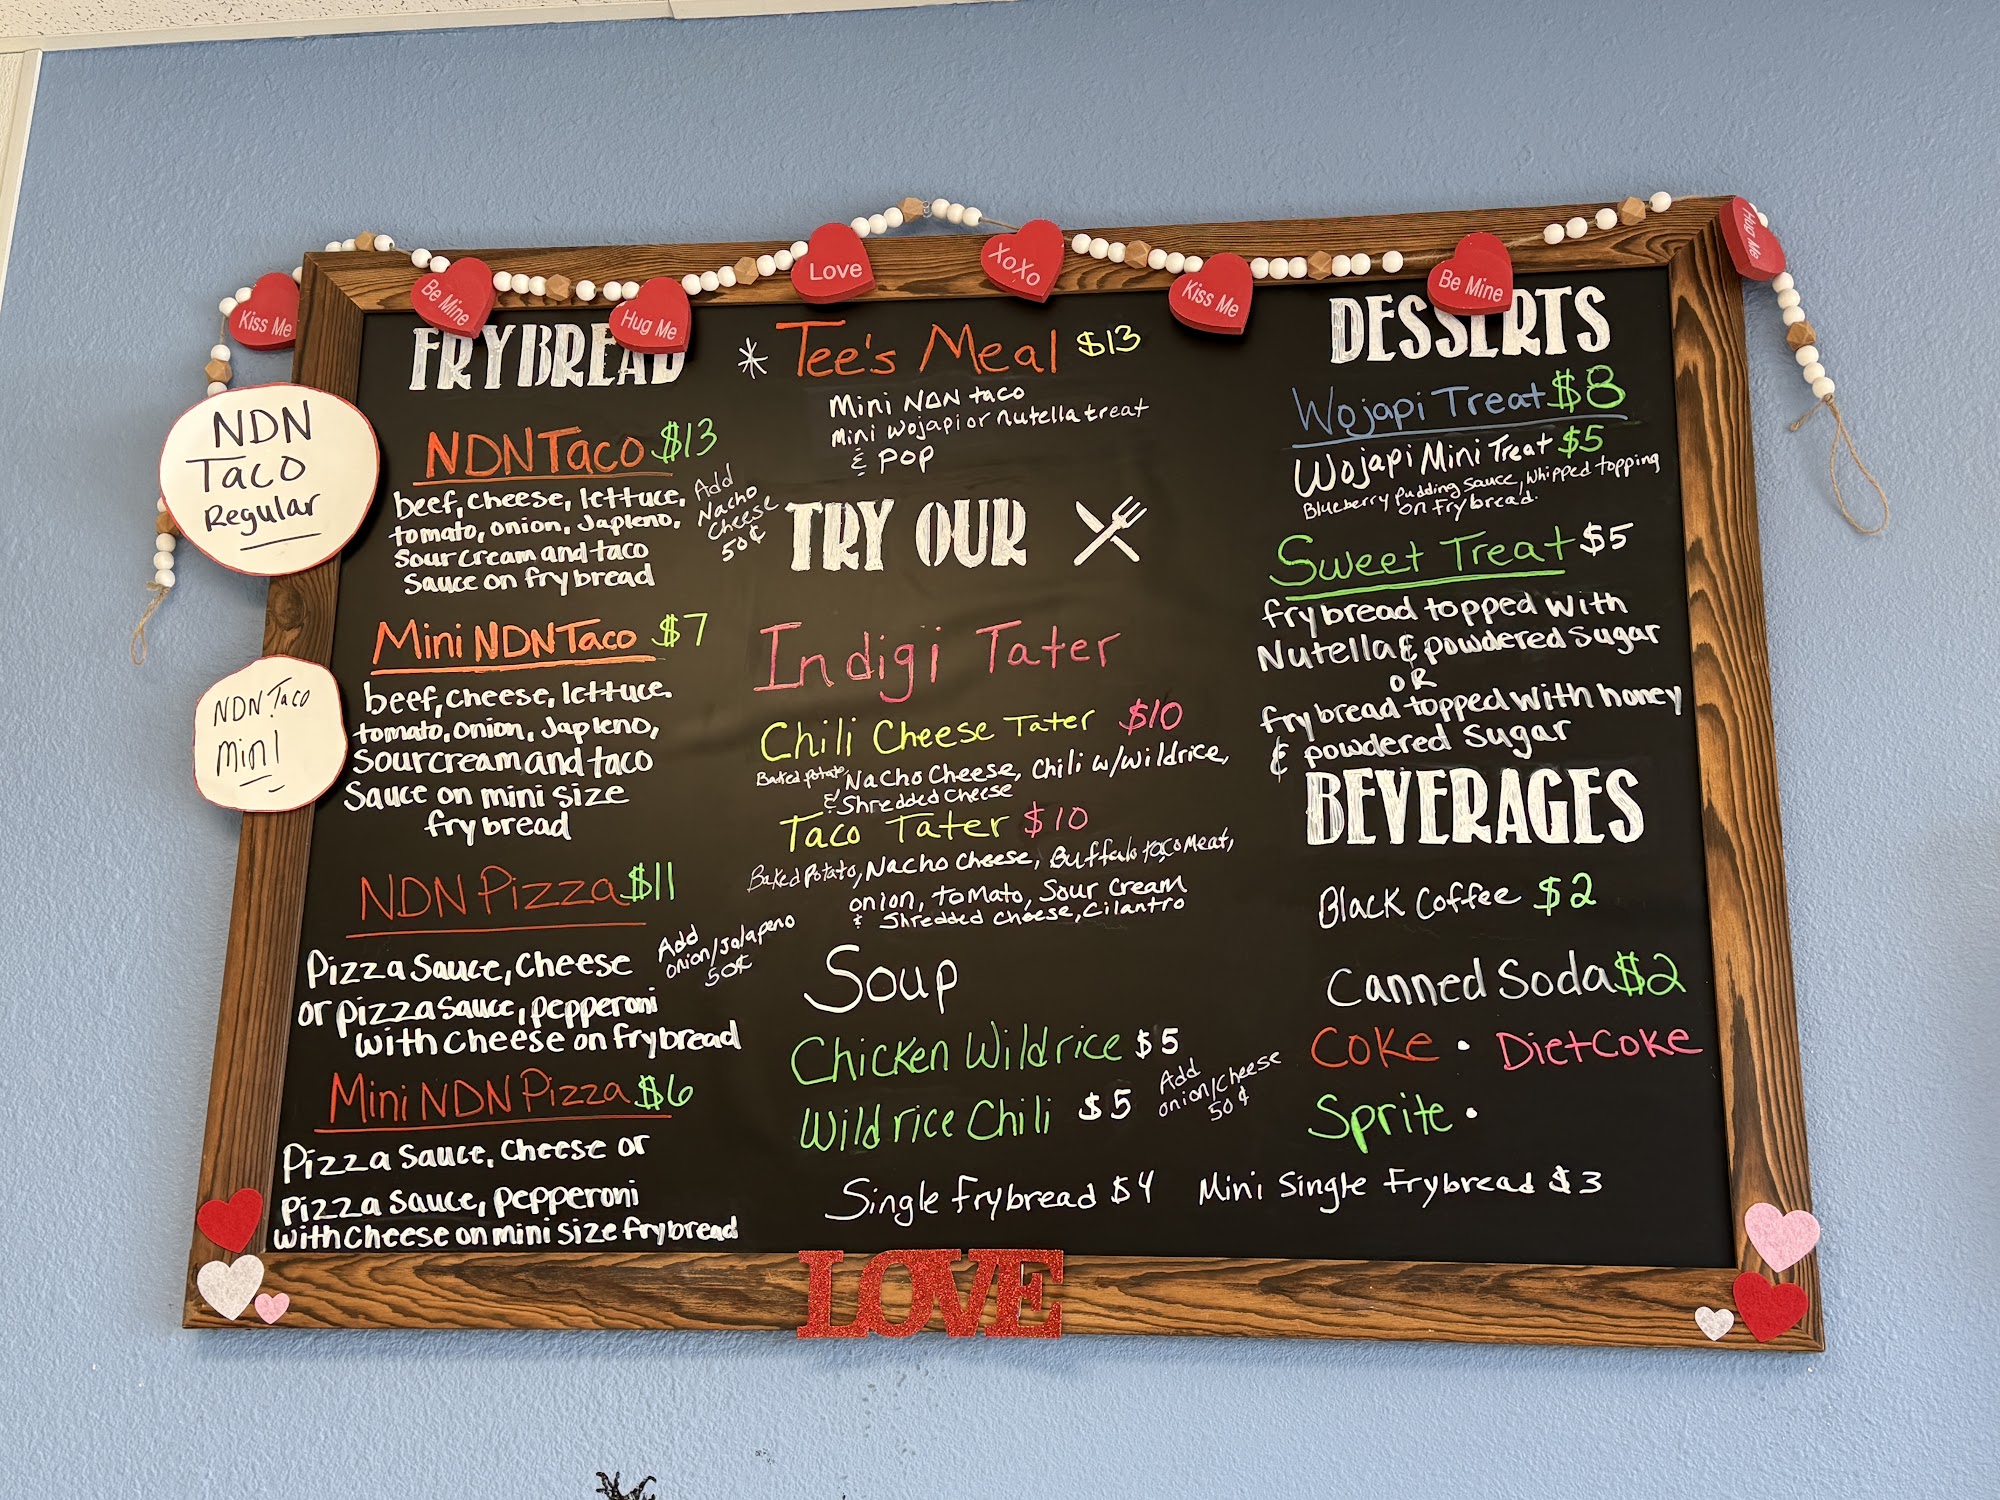 Kiss Me
Be Mine
Hug Me
Love
XoXo
Kiss Me
Be Mine
Hug Me
NDN
Taco
Regular
NDN Taco
Mini
FRYBREAD
NDN Taco $13
beef, cheese, lettuce,
tomato, onion, Japleno,
Sour cream and taco
Sauce on frybread
Add
Nacho
Cheese
50¢
Mini NDN Taco $7
beef, cheese, lettuce.
tomato, onion, Japleno,
Sour cream and taco
Sauce on mini size
frybread
NDN Pizza $11
Pizza Sauce, Cheese
or pizza sauce, pepperoni
with cheese on frybread
Add
onion/Jalapeno
50¢
Mini NDN Pizza $6
Pizza Sauce, Cheese or
Pizza Sauce, pepperoni
with cheese on mini size frybread
* Tee's Meal $13
Mini NDN taco
Mini Wojapi or Nutella treat
& POP
TRY OUR
Indigi Tater
Chili Cheese Tater $10
Baked potato, Nacho Cheese, Chili w/wildrice,
& Shredded Cheese
Taco Tater $10
Baked Potato, Nacho Cheese, Buffalo taco Meat,
onion, Tomato, Sour Cream
& Shredded Cheese, Cilantro
Soup
Chicken Wildrice $5
Wildrice Chili $5
Add
onion/cheese
50¢
Single Frybread $4 Mini Single Frybread $3
DESSERTS
Wojapi Treat $8
Wojapi Mini Treat $5
Blueberry pudding sauce, whipped topping
on frybread.
Sweet Treat $5
frybread topped with
Nutella & powdered Sugar
OR
frybread topped with honey
& powdered Sugar
BEVERAGES
Black Coffee $2
Canned Soda $2
Coke • Diet Coke
Sprite •
LOVE